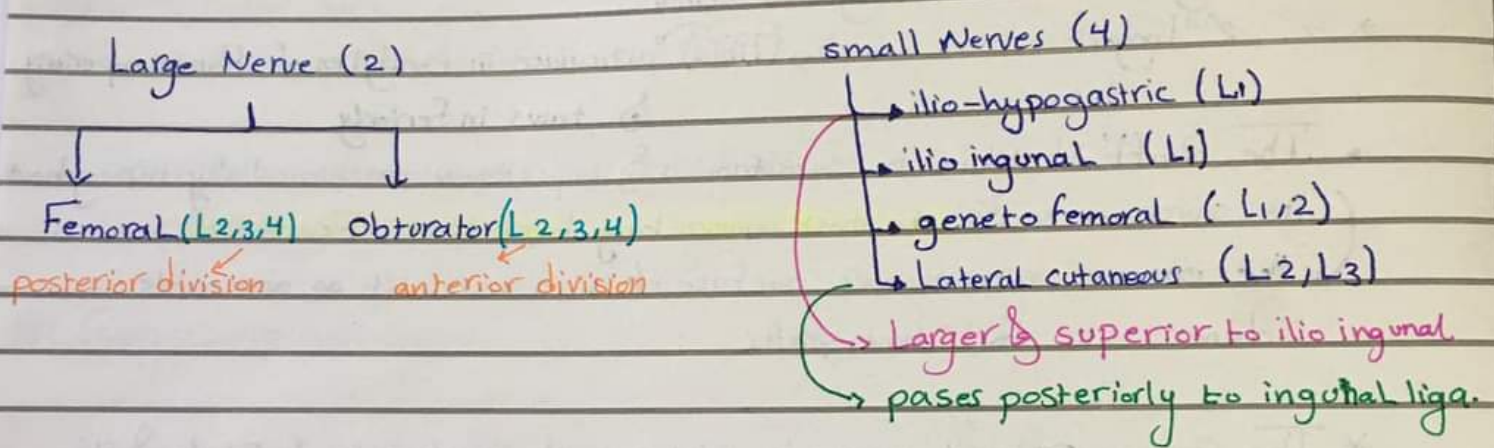 Large Nerve (2)
Femoral (L2,3,4) Obturator (L 2,3,4)
posterior division anterior division
small Nerves (4)
ilio-hypogastric (L1)
ilio ingunal (L1)
geneto femoral (L1,2)
Lateral cutaneous (L.2, L3)
Larger & superior to ilio ingunal
pases posteriorly to ingunal liga.